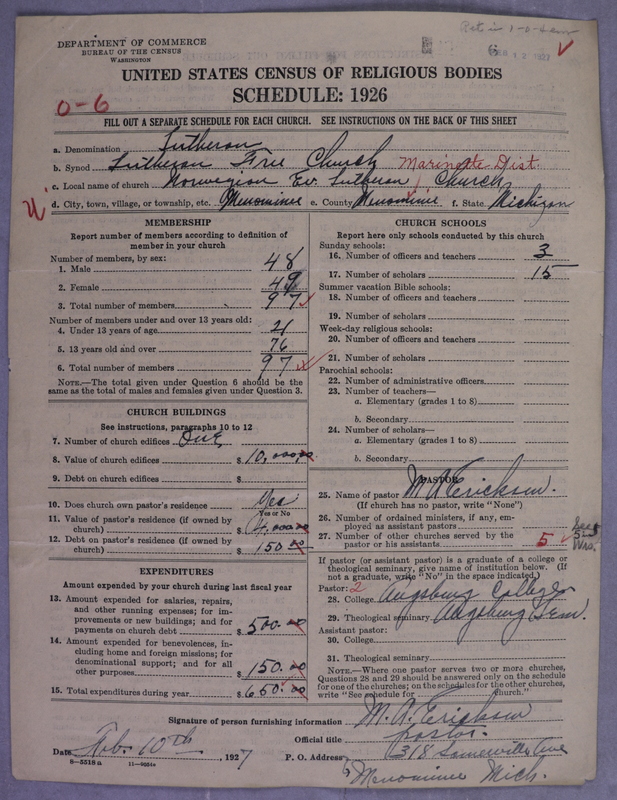 DEPARTMENT OF COMMERCE
BUREAU OF THE CENSUS
WASHINGTON
UNITED STATES CENSUS OF RELIGIOUS BODIES
SCHEDULE: 1926
0-6
FILL OUT A SEPARATE SCHEDULE FOR EACH CHURCH. SEE INSTRUCTIONS ON THE BACK OF THIS SHEET
a. Denomination Lutheran
b. Synod Lutheran Free Church Marinette Dist.
c. Local name of church Norwegian Ev. Lutheran Church
d. City, town, village, or township, etc. Menominee e. County Menominee f. State Michigan
MEMBERSHIP
Report number of members according to definition of member in your church
Number of members, by sex:
1. Male 48
2. Female 49
3. Total number of members 97
Number of members under and over 13 years old:
4. Under 13 years of age 21
5. 13 years old and over 76
6. Total number of members 97
NOTE.—The total given under Question 6 should be the same as the total of males and females given under Question 3.
CHURCH BUILDINGS
See instructions, paragraphs 10 to 12
7. Number of church edifices One
8. Value of church edifices $ 10,000.00
9. Debt on church edifices $
10. Does church own pastor's residence? Yes
Yes or No
11. Value of pastor's residence (if owned by church) $ 4,000.00
12. Debt on pastor's residence (if owned by church) $ 150.00
EXPENDITURES
Amount expended by your church during last fiscal year
13. Amount expended for salaries, repairs, and other running expenses; for improvements or new buildings; and for payments on church debt $ 500.00
14. Amount expended for benevolences, including home and foreign missions; for denominational support; and for all other purposes $ 150.00
15. Total expenditures during year $ 650.00
CHURCH SCHOOLS
Report here only schools conducted by this church
Sunday schools:
16. Number of officers and teachers 3
17. Number of scholars 15
Summer vacation Bible schools:
18. Number of officers and teachers
19. Number of scholars
Week-day religious schools:
20. Number of officers and teachers
21. Number of scholars
Parochial schools:
22. Number of administrative officers
23. Number of teachers—
a. Elementary (grades 1 to 8)
b. Secondary
24. Number of scholars—
a. Elementary (grades 1 to 8)
b. Secondary
PASTOR
25. Name of pastor M. A. Erickson.
(If church has no pastor, write "None")
26. Number of ordained ministers, if any, employed as assistant pastors
27. Number of other churches served by the pastor or his assistants 5
If pastor (or assistant pastor) is a graduate of a college or theological seminary, give name of institution below. (If not a graduate, write "No" in the space indicated.)
Pastor: 2
28. College Augsburg College
29. Theological seminary Augsburg Sem.
Assistant pastor:
30. College
31. Theological seminary
NOTE.—Where one pastor serves two or more churches, Questions 28 and 29 should be answered only on the schedule for one of the churches; on the schedules for the other churches, write "See schedule for church."
Signature of person furnishing information M. A. Erickson
Official title pastor.
Date Feb. 10th, 1927 P. O. Address 318 Somerville Ave
8-5518 a 11-9051a
Menominee Mich.